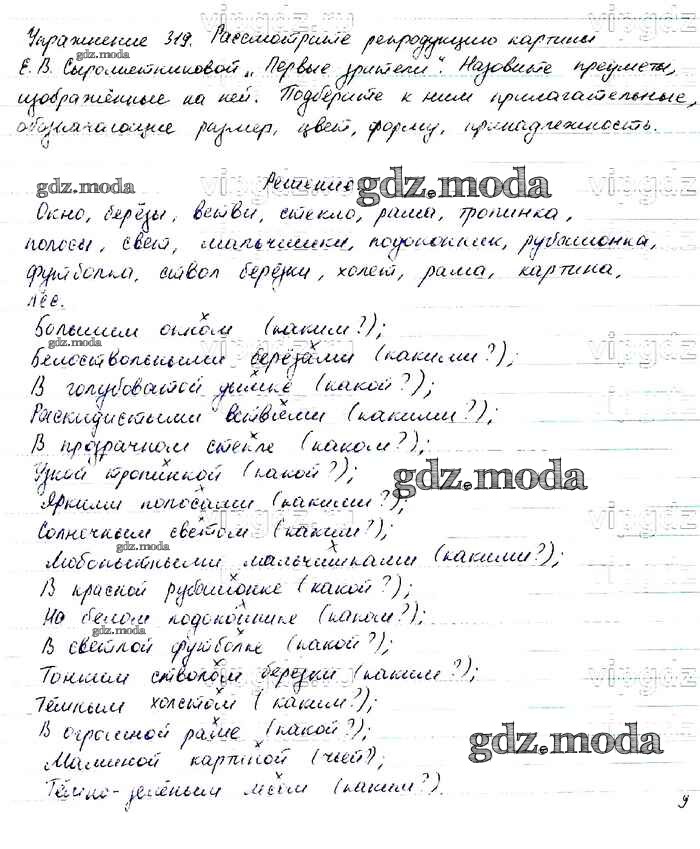 Упражнение 319. Рассмотрите репродукцию картины
Е. В. Сыромятниковой „Первые зрители". Назовите предметы,
изображённые на ней. Подберите к ним прилагательные,
обозначающие размер, цвет, форму, принадлежность.
Решение
Окно, берёзы, ветви, стекло, рама, тропинка,
полосы, свет, мальчишки, подоконник, рубашонка,
футболка, ствол берёзки, холст, рама, картина,
лес.
Большим окном (каким?);
Белоствольными берёзами (какими?);
В голубоватой дымке (какой?);
Раскидистыми ветвями (какими?);
В прозрачном стекле (каком?);
Узкой тропинкой (какой?);
Яркими полосами (какими?);
Солнечным светом (каким?);
Любопытными мальчишками (какими?);
В красной рубашонке (какой?);
На белом подоконнике (каком?);
В светлой футболке (какой?);
Тонким стволом берёзки (каким?);
Тёмным холстом (каким?);
В огромной раме (какой?);
Маминой картиной (чьей?);
Тёмно-зелёным лесом (каким?).
9
gdz.moda
gdz.moda
gdz.moda
gdz.moda
gdz.moda
gdz.moda
gdz.moda
gdz.moda